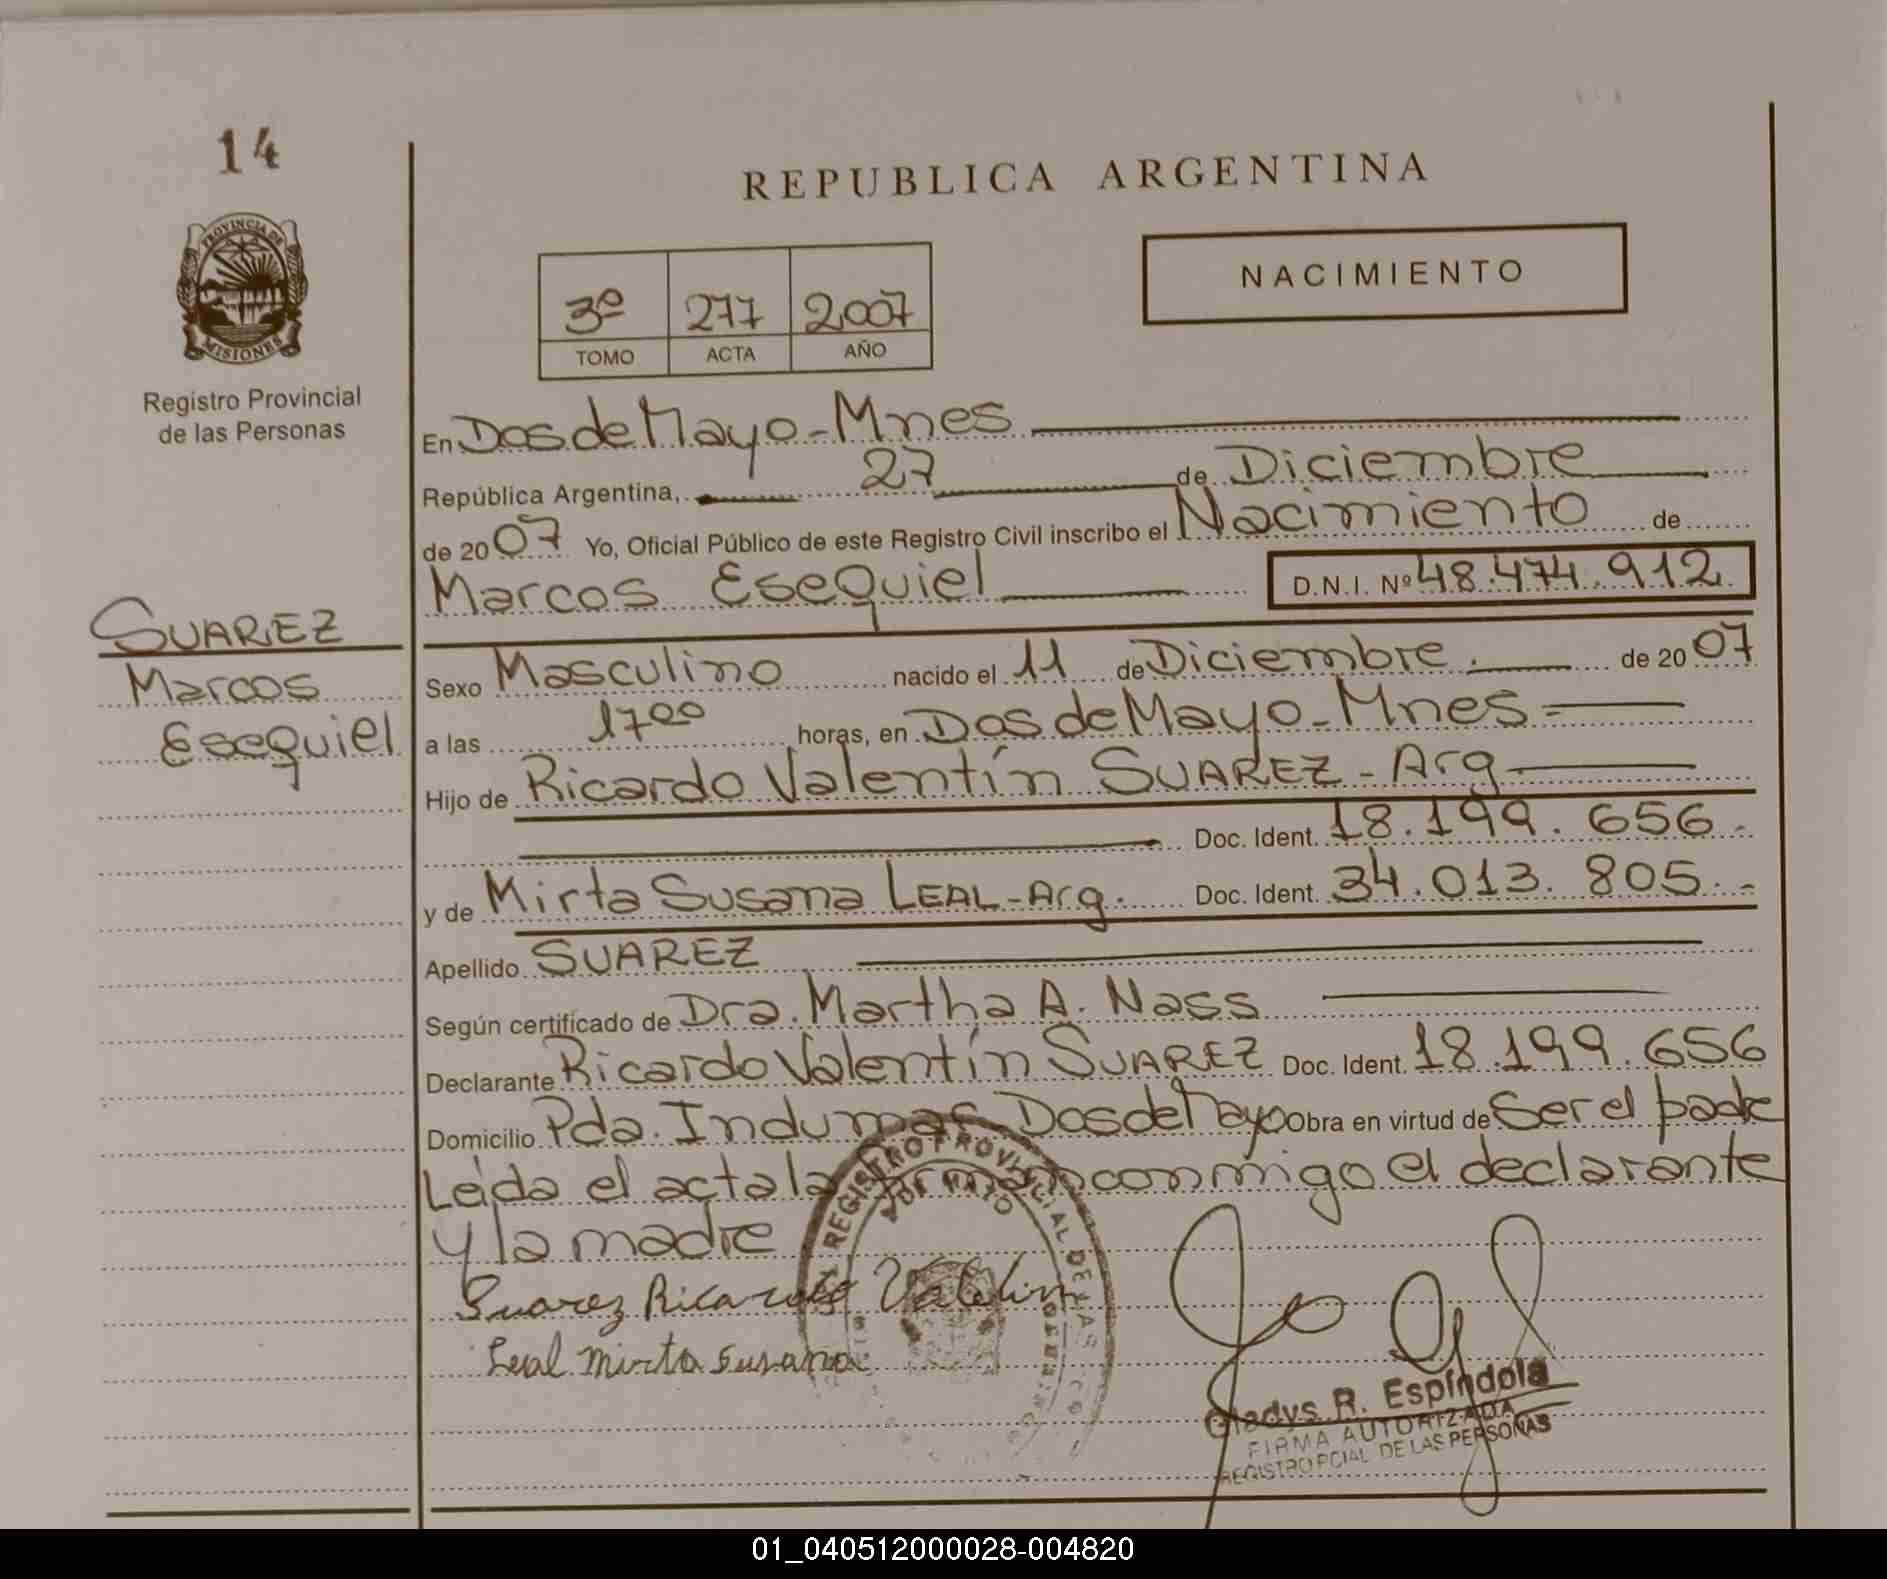 14
REPUBLICA ARGENTINA
PROVINCIA DE
MISIONES
Registro Provincial
de las Personas
3º 277 2007
TOMO ACTA AÑO
NACIMIENTO
En Dos de Mayo - Mnes
República Argentina, 27 de Diciembre
de 2007 Yo, Oficial Público de este Registro Civil inscribo el Nacimiento de
Marcos Esequiel D.N.I. Nº 48.474.912
SUAREZ
Marcos
Esequiel
Sexo Masculino nacido el 11 de Diciembre. de 2007
a las 1700 horas, en Dos de Mayo - Mnes
Hijo de Ricardo Valentín SUAREZ - Arg
Doc. Ident. 18.199.656.-
y de Mirta Susana LEAL - Arg. Doc. Ident. 34.013.805.-
Apellido SUAREZ
Según certificado de Dra. Martha A. Nass
Declarante Ricardo Valentín SUAREZ Doc. Ident. 18.199.656
Domicilio Pda. Indumar Dos de Mayo Obra en virtud de Ser el padre
Leída el acta la firman conmigo el declarante
y la madre
REGISTRO PROVINCIAL DE LAS
2 DE MAYO
Suarez Ricardo Valentin
Leal Mirta Susana
Gladys R. Espíndola
FIRMA AUTORIZADA
REGISTRO PCIAL DE LAS PERSONAS
01_040512000028-004820